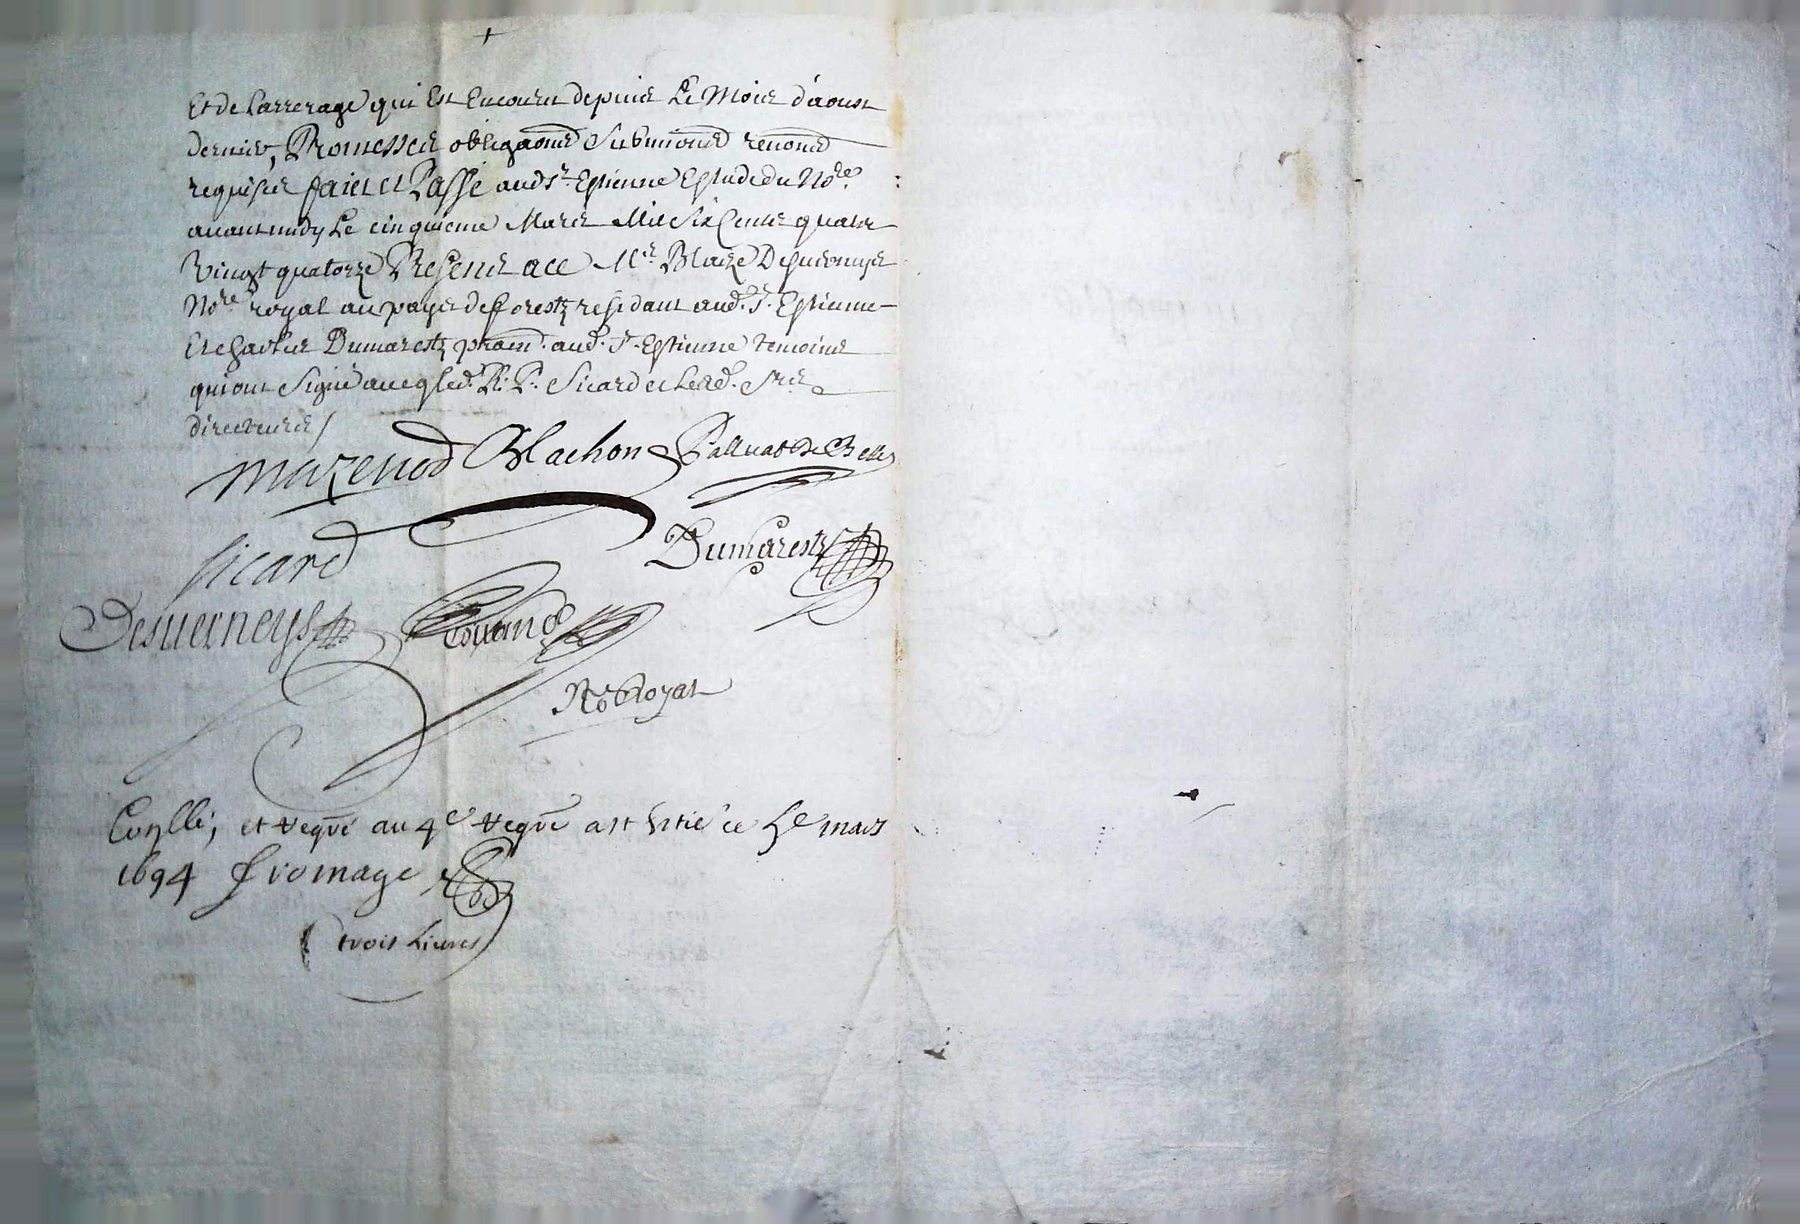 Et de l'arrerage qui Est Encouru depuis Le Mois d'aoust
dernier, Promesses obligaons Submions renons
requises faict et Passé aud St. Estienne Estude du Nore.
avant midy Le cinquieme Mars Mil Six Cents quatre
Vingt quatorze Presents a ce Mr. Blaize Desverneys
Nore royal au pays de fforestz residant aud. St. Estienne
Et Charles Dumarestz aud. St. Estienne temoins
qui ont Signé avecq led. R. P. Sicard et Lesd. Srs
directeurs /
Mazenod Blachon Palluat de Besse
Sicard Dumarestz
Desverneys
No Royal
Conllé, et au 4e ce 5e mars
1694 fromage
trois Livres